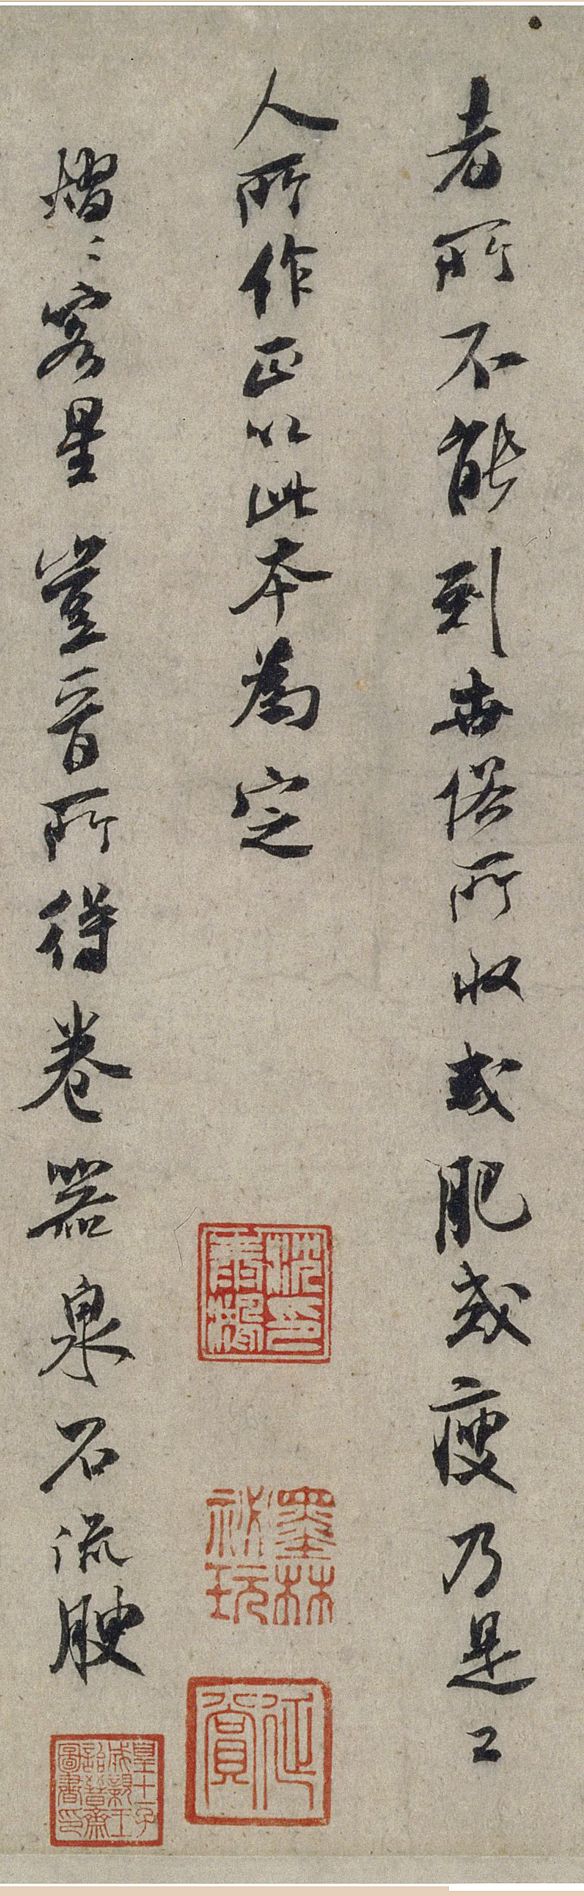 者所不能到世俗所收或肥或瘦乃是工
人所作正以此本為定
熠〻客星豈晉所得養器泉石流腴
墨林祕玩
延賞
皇十一子成親王詒晉齋圖書印